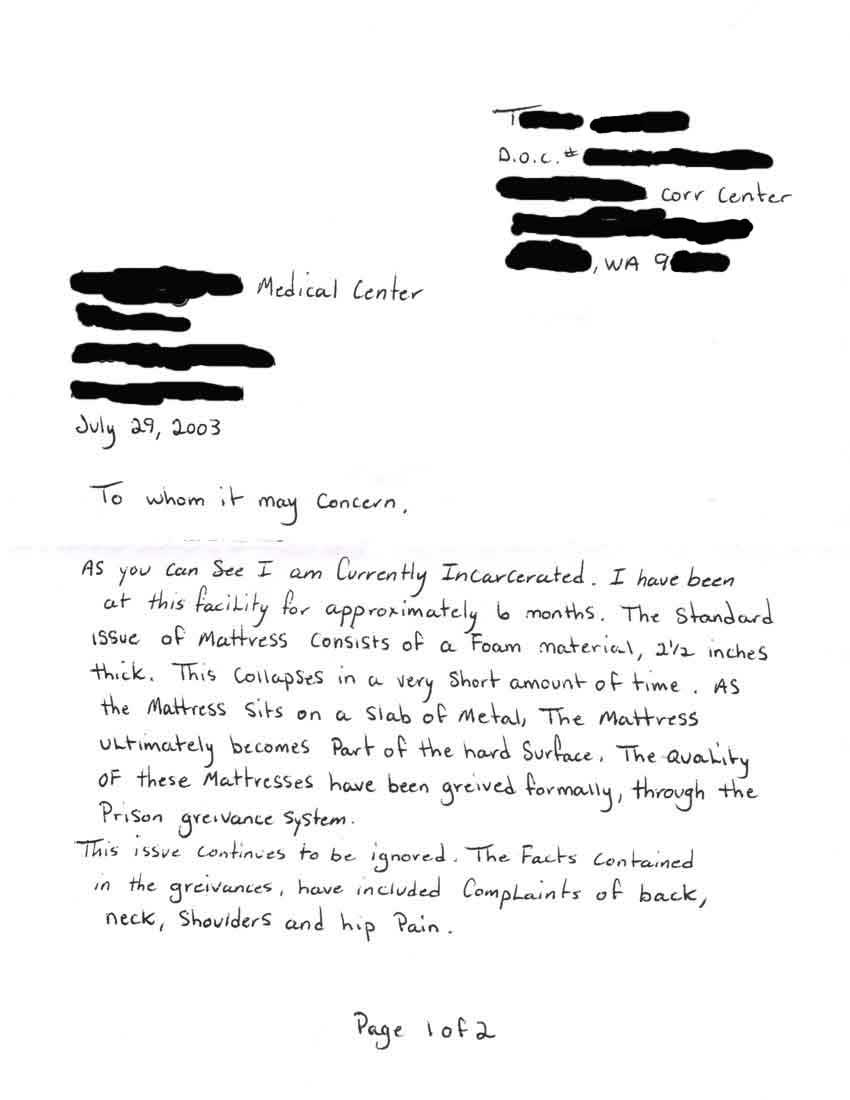 T
D.O.C. #
Corr Center
, WA 9
Medical Center
July 29, 2003
To whom it may Concern,
As you can see I am Currently Incarcerated. I have been
at this facility for approximately 6 months. The Standard
issue of Mattress Consists of a Foam material, 2 1/2 inches
thick. This Collapses in a very Short amount of time. As
the Mattress Sits on a Slab of Metal, The Mattress
ultimately becomes Part of the hard Surface. The Quality
of these Mattresses have been greived formally, through the
Prison greivance System.
This issue continues to be ignored. The Facts contained
in the greivances, have included Complaints of back,
neck, Shoulders and hip Pain.
Page 1 of 2